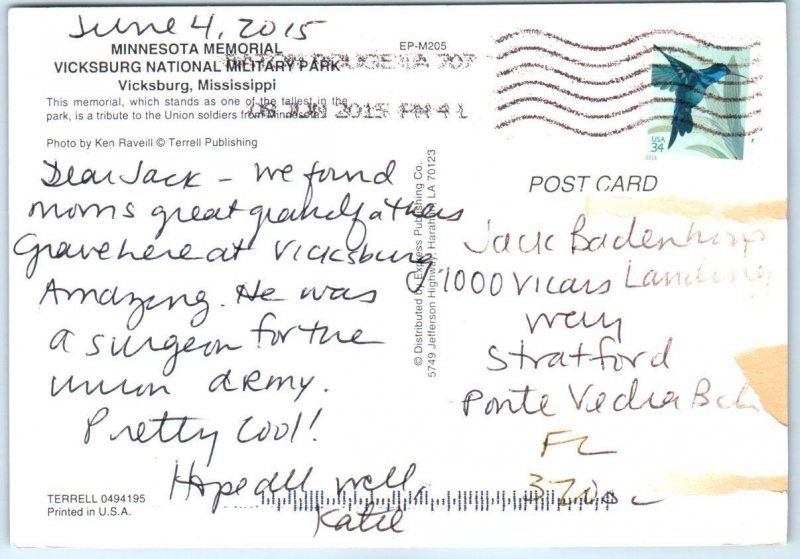 June 4, 2015
MINNESOTA MEMORIAL
VICKSBURG NATIONAL MILITARY PARK
Vicksburg, Mississippi
This memorial, which stands as one of the tallest in the
park, is a tribute to the Union soldiers from Minnesota.
Photo by Ken Raveill © Terrell Publishing
EP-M205
2015 PM 4 L
USA
34
Dear Jack - We found
moms great grandfathers
Grave here at Vicksburg
Amazing. He was
a surgeon for the
union army.
Pretty Cool!
Hope all well,
Katie
TERRELL 0494195
Printed in U.S.A.
© Distributed by Express Publishing Co.
5749 Jefferson Highway, Harahan, LA 70123
POST CARD
Jack
1000 Vicars Landing
Way
Stratford
Ponte Vedra Bch
FL